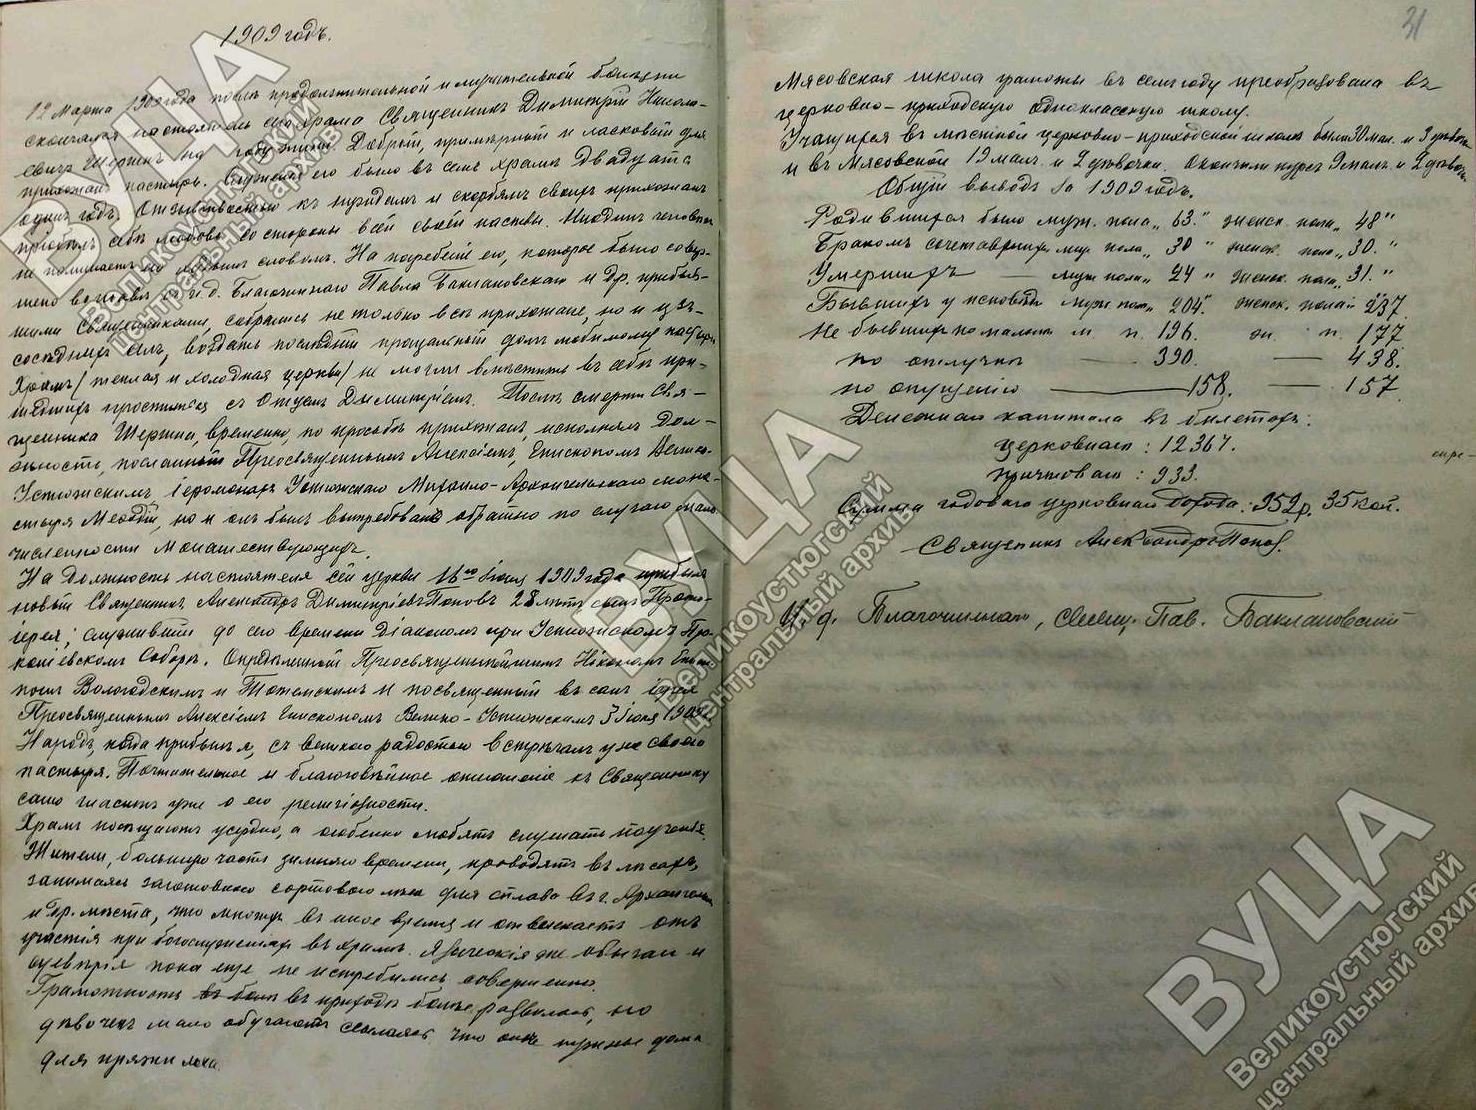 1909 годъ.
12 Марта 1909 года послѣ продолжительной и мучительной болѣзни
скончался настоятель сего храма Священникъ Димитрій Никола-
евичъ Шергинъ на году жизни. Добрый, примѣрный и ласковый для
прихожанъ пастырь. Служенія его было въ семъ храмѣ двадцать
одинъ годъ. Отзывчивостью къ нуждамъ и скорбямъ своихъ прихожанъ
пріобрѣлъ себѣ любовь со стороны всей своей паствы. Ниодинъ человѣкъ
не помянетъ его худымъ словомъ. На погребеніе его, которое было совер-
шено во главѣ съ и. д. Благочиннаго Павла Баклановскаго и др. прибыв-
шими Священниками, собрались не только всѣ прихожане, но и изъ
сосѣднихъ селъ, воздать послѣдній прощальный долгъ любимому пастырю
Храмъ / теплая и холодная церкви / не могли вмѣстить въ себѣ при-
шедшихъ проститься съ Отцемъ Димитріемъ. Послѣ смерти Свя-
щенника Шергина, временно, по просьбѣ прихожанъ, исполнялъ дол-
жность, посланный Преосвященнымъ Алексіемъ, Епископомъ Велико-
Устюжскимъ, іеромонахъ Устюжскаго Михаило-Архангельскаго мона-
стыря Меѳодій, но и онъ былъ вытребованъ обратно по случаю мало-
численности монашествующихъ.
На должность настоятеля сей церкви 16го Іюля 1909 года прибылъ
новый Священникъ Александръ Димитріевъ Поповъ 28 лѣтъ сынъ Прото-
іерея; служившій до сего времени діакономъ при Устюжскомъ Про-
копіевскомъ Соборѣ. Опредѣленный Преосвященнѣйшимъ Никономъ Епис-
попомъ Вологодскимъ и Тотемскимъ и посвященный въ санъ іерея
Преосвященнымъ Алексіемъ Епископомъ Велико-Устюжскимъ 3 Іюля 1909 г.
Народъ, когда прибылъ я, съ великою радостью встрѣчалъ уже своего
пастыря. Почтительное и благоговѣйное отношеніе къ Священнику
само гласитъ уже о его религіозности.
Храмъ посѣщаютъ усердно, а особенно любятъ слушать поученія.
Жители, большую часть зимняго времени, проводятъ въ лѣсахъ,
занимаясь заготовкою сортового лѣса для сплава въ г. Архангельскъ
и др. мѣста, что многихъ въ иное время и отвлекаетъ отъ
участія при богослуженіяхъ въ храмѣ. Языческія же обычаи и
суевѣрія пока еще не истребились совершенно.
Грамотность въ приходѣ болѣе развилась, но
дѣвочекъ мало обучаютъ ссылаясь что онѣ нужны дома
для пряжи льна.
31
Мясовская школа грамоты въ семъ году преобразована въ
церковно-приходскую одноклассную школу.
Учащихся въ мѣстной церковно-приходской школѣ было 30 мал. и 3 дѣвочки
и въ Мясовской 19 мал. и 2 дѣвочки. Окончили курсъ 9 мал. и 2 дѣвочки
Общій выводъ за 1909 годъ.
Родившихся было муж. пола „ 63." женск. пола „ 48"
Бракомъ сочетавшихся муж. пола „ 30 " женск. пола „ 30. "
Умершихъ — муж. пола „ 24 " женск. пола „ 31. "
Бывшихъ у исповѣди муж. пола „ 204." женск. пола „ 237.
Не бывшихъ по малол. м. п. 196. ж. п. 177.
по отлучкѣ — 390. — 438.
по опущенію — 158. — 157.
Денежнаго капитала въ билетахъ:
церковнаго: 12367.
причтоваго: 933.
Сумма годоваго церковнаго дохода: 352 р. 35 коп.
Священникъ Александръ Поповъ.
И. д. Благочиннаго, Свящ. Пав. Баклановскій
ВУЦА
Великоустюгский
центральный архив
ВУЦА
Великоустюгский
центральный архив
ВУЦА
Великоустюгский
центральный архив